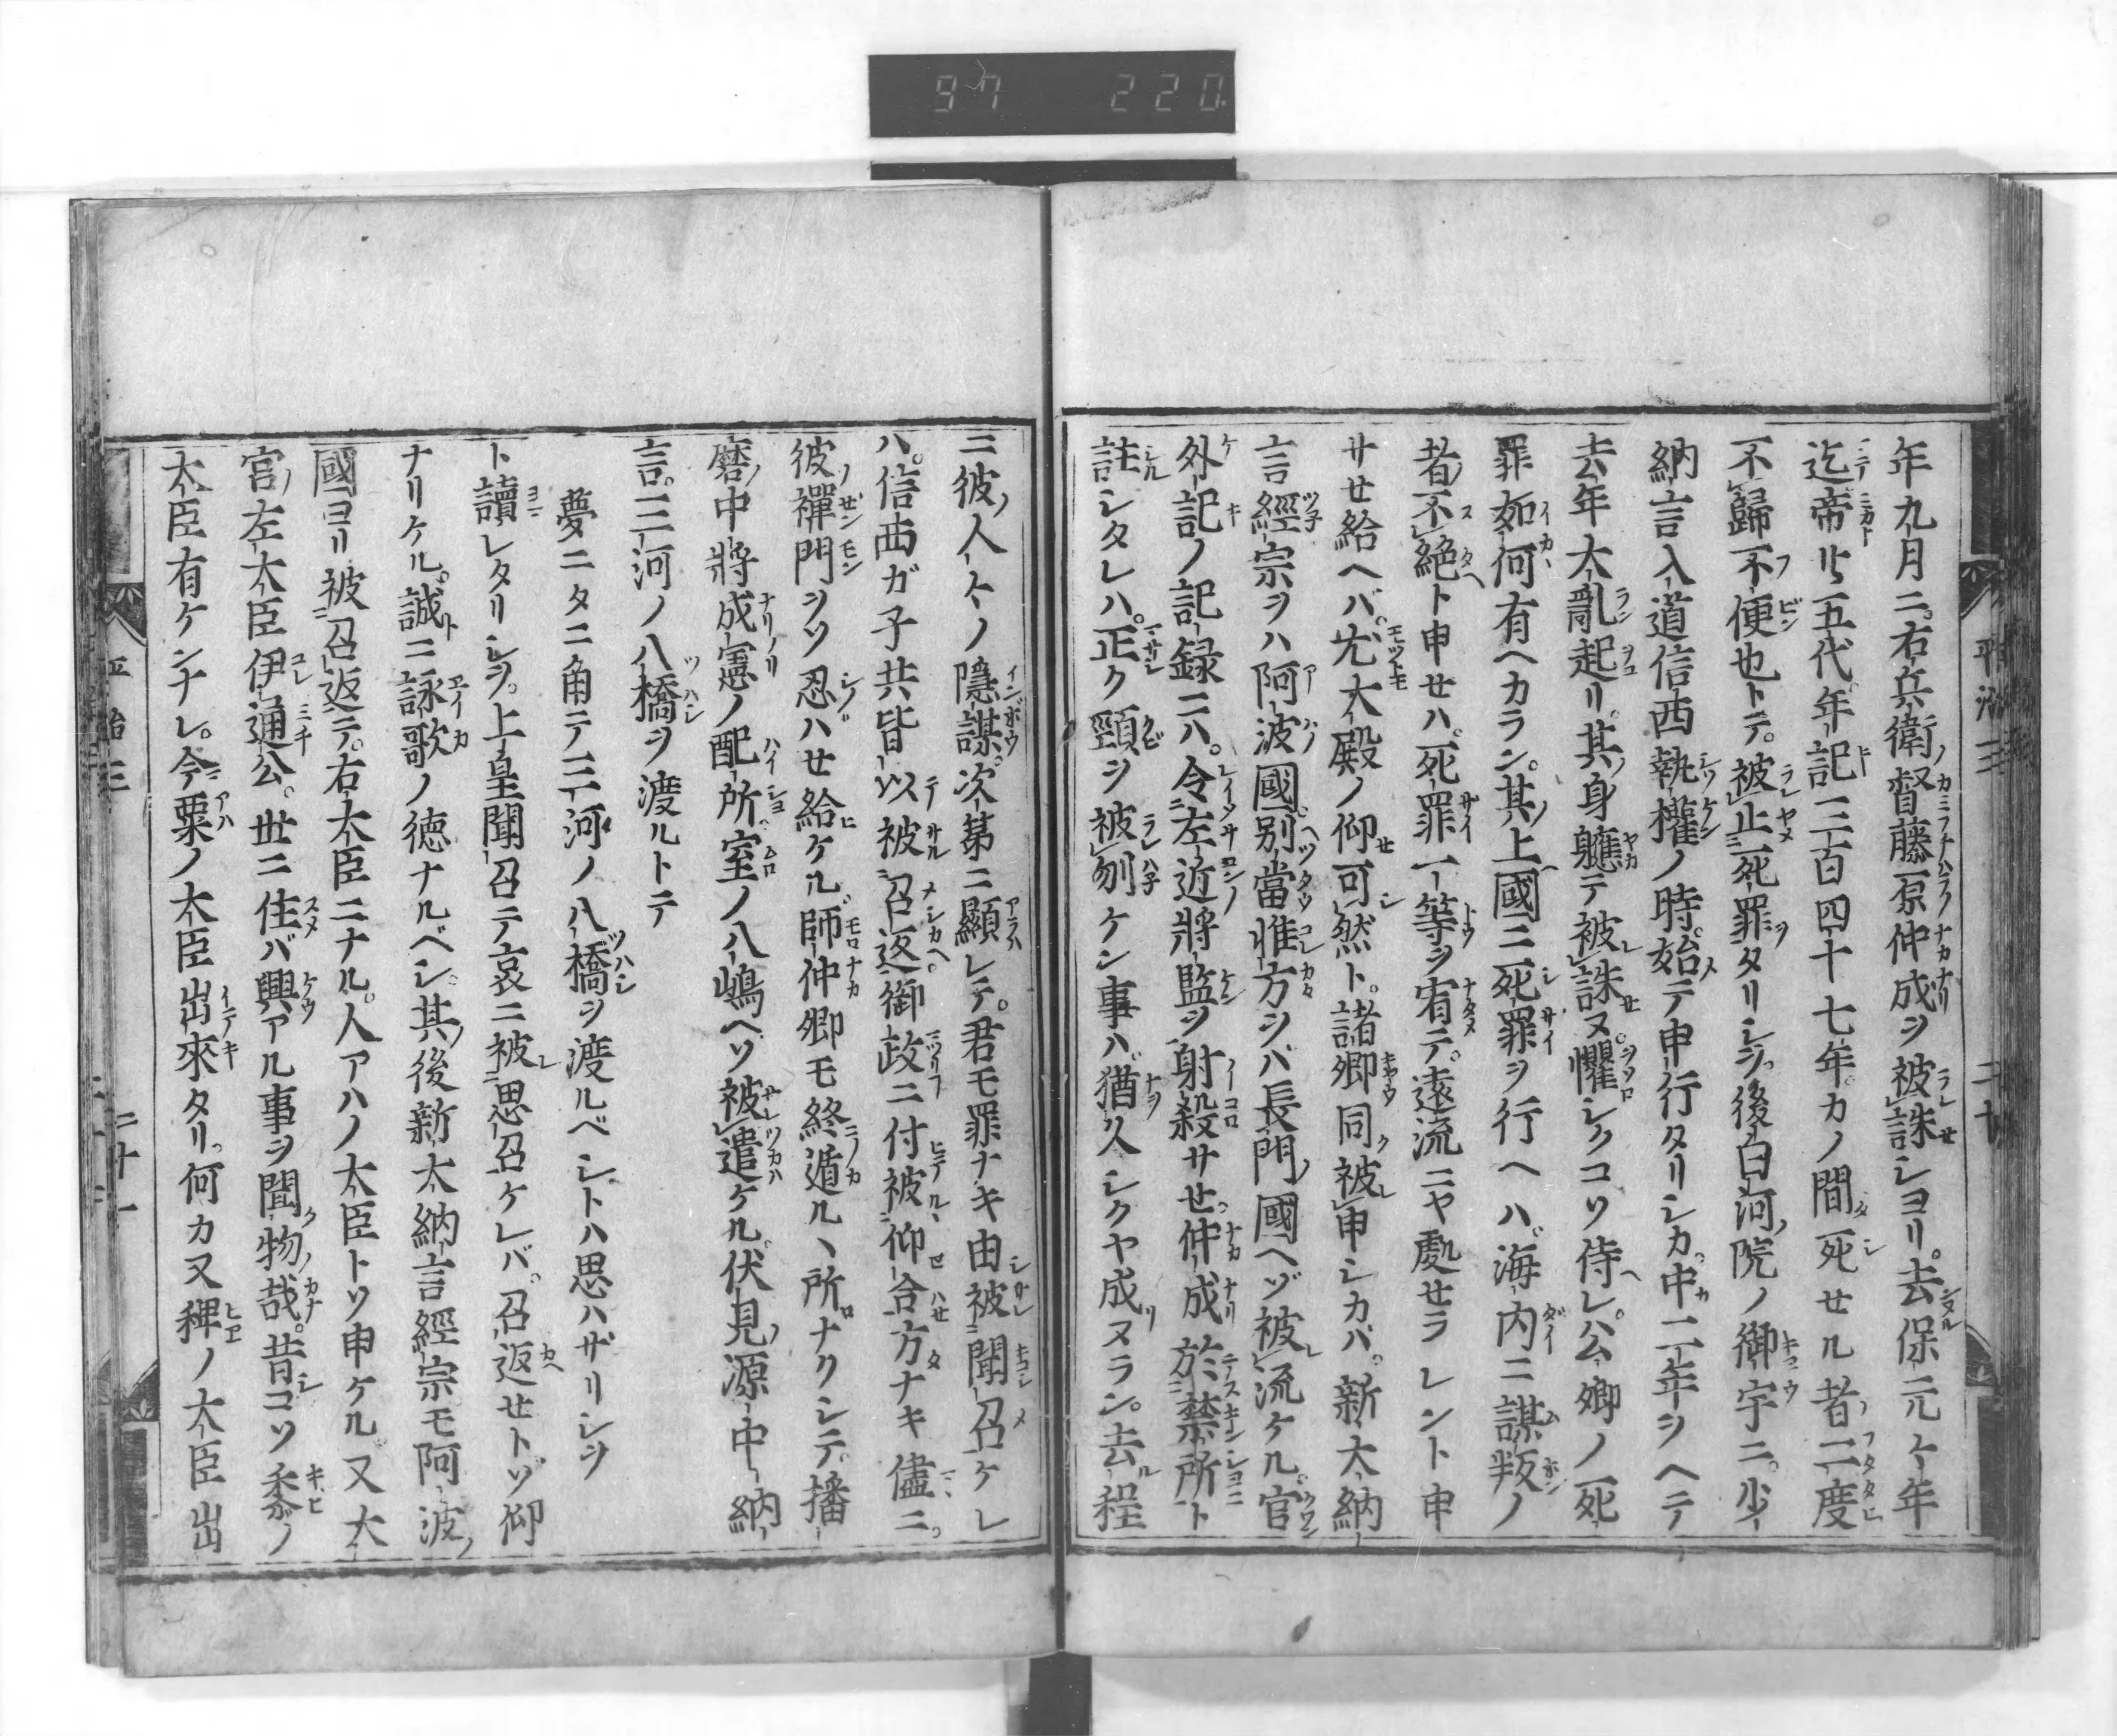 97 220
年九月ニ。右兵衛督藤原仲成ヲ被誅シヨリ。去保元ケ年
迄帝廿五代年記三百四十七年カノ間死セル者二度
不歸不便也トテ。被止死罪タリシヲ。後白河院ノ御宇ニ。少
納言入道信西執權ノ時。始テ申行タリシカ。中二年ヲヘテ
去年大亂起リ。其身軈テ被誅ヌ。懼シクコソ侍レ。公卿ノ死
罪如何有ヘカラン。其上國ニ死罪ヲ行ヘハ。海内ニ謀叛ノ
者不絶ト申セハ。死罪一等ヲ宥テ。遠流ニヤ處セラレント申
サせ給ヘバ。尤大殿ノ仰可然ト。諸卿同被申シカバ。新大納
言經宗ヲハ阿波國。別當惟方シハ長門國ヘゾ被流ケル。官
外記ノ記録ニハ。令左近將監ヲ射殺サせ仲成於禁所ト
註シタレハ。正ク頸ヲ被刎ケン事ハ。猶久シクヤ成ヌラン。去程
平治三 二十
ニ彼人々ノ隱謀。次第ニ顯レテ。君モ罪ナキ由被聞召ケレ
ハ。信西ガ子共皆以被召返。御政ニ付被仰合方ナキ儘ニ。
彼禪門ヲソ忍ハせ給ケル。師仲卿モ終遁ルヽ所ナクシテ。播
磨中將成憲ノ配所室ノ八嶋ヘソ被遣ケル。伏見源中納
言。三河ノ八橋ヲ渡ルトテ
夢ニタニ角テ三河ノ八橋ヲ渡ルベシトハ思ハザリシヲ
ト讀レタリシヲ。上皇聞召テ哀ニ被思召ケレバ。召返せトゾ仰
ナリケル。誠ニ詠歌ノ徳ナルベシ。其後新大納言經宗モ阿波
國ヨリ被召返テ。右大臣ニナル。人アハノ大臣トソ申ケル。又大
宮左大臣伊通公。世ニ住バ興アル事ヲ聞物哉。昔コソ黍ノ
太臣有ケンナレ。今粟ノ大臣出來タリ。何カ又稗ノ大臣出
平治三 二十一